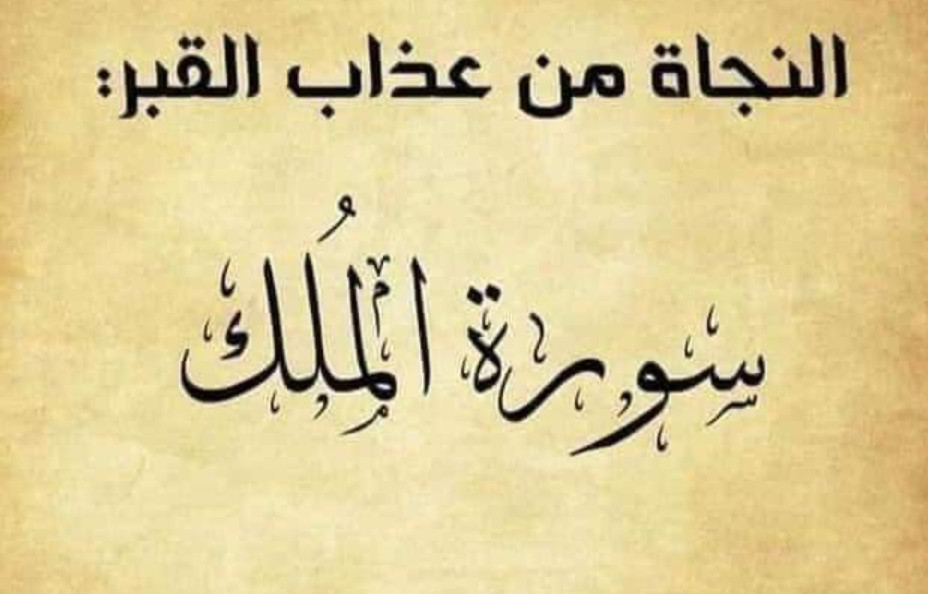 النجاة من عذاب القبر:
سورة المُلك